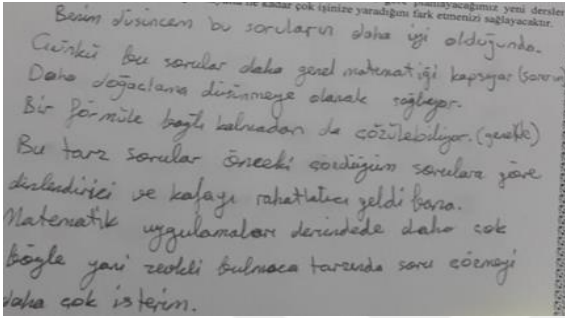 ne kadar çok işinize yaradığını fark etmenizi sağlayacaktır.
Benim düşüncem bu soruların daha iyi olduğunda.
Çünkü bu sorular daha genel matematiği kapsıyor (sanırım)
Daha doğaçlama düşünmeye olanak sağlıyor.
Bir formüle bağlı kalmadan da çözülebiliyor. (genelde)
Bu tarz sorular önceki çözdüğüm sorulara göre
dinlendirici ve kafayı rahatlatıcı geldi bana.
Matematik uygulamaları dersindede daha çok
böyle yani zevkli bulmaca tarzında soru çözmeyi
daha çok isterim.